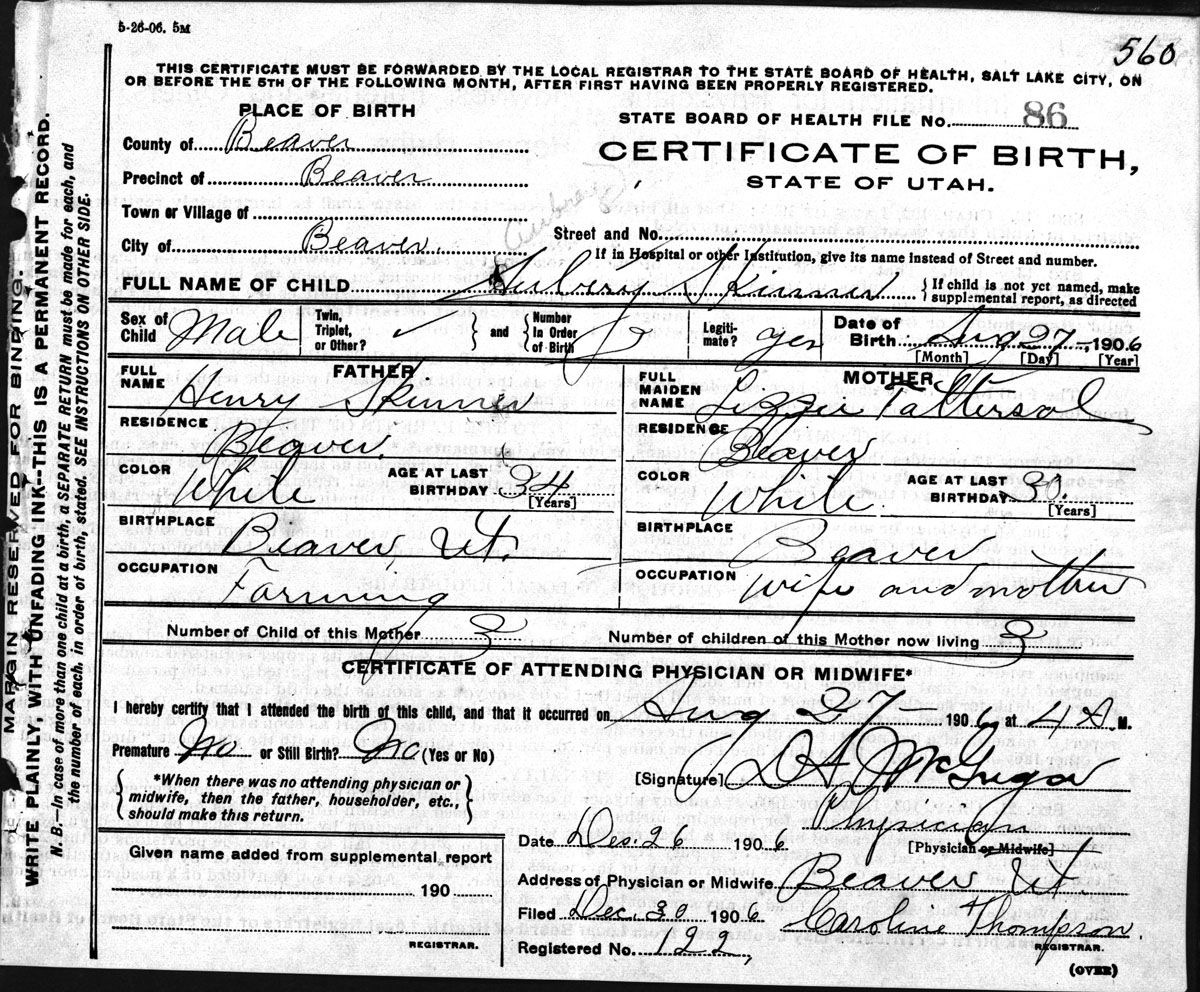 5-26-06. 5M
560
THIS CERTIFICATE MUST BE FORWARDED BY THE LOCAL REGISTRAR TO THE STATE BOARD OF HEALTH, SALT LAKE CITY, ON
OR BEFORE THE 5TH OF THE FOLLOWING MONTH, AFTER FIRST HAVING BEEN PROPERLY REGISTERED.
PLACE OF BIRTH
STATE BOARD OF HEALTH FILE No. 86
County of Beaver
CERTIFICATE OF BIRTH,
STATE OF UTAH.
Precinct of Beaver
Town or Village of
Aubrey
Street and No.
City of Beaver.
If in Hospital or other Institution, give its name instead of Street and number.
FULL NAME OF CHILD Skinner
If child is not yet named, make supplemental report, as directed
Sex of Child Male
Twin, Triplet, or Other?
and
Number In Order of Birth
Legiti- mate? yes
Date of Birth Aug 27 1906
[Month] [Day] [Year]
FATHER
FULL NAME Henry Skinner
RESIDENCE Beaver.
COLOR White
AGE AT LAST BIRTHDAY 34 [Years]
BIRTHPLACE Beaver, Ut.
OCCUPATION Farming
MOTHER
FULL MAIDEN NAME Lizzie Tattersal
RESIDENCE Beaver
COLOR White.
AGE AT LAST BIRTHDAY 30. [Years]
BIRTHPLACE Beaver
OCCUPATION Wife and mother
Number of Child of this Mother 3
Number of children of this Mother now living 3
CERTIFICATE OF ATTENDING PHYSICIAN OR MIDWIFE*
I hereby certify that I attended the birth of this child, and that it occurred on Aug 27 1906 at 4 A M.
Premature No or Still Birth? No (Yes or No)
*When there was no attending physician or
midwife, then the father, householder, etc.,
should make this return.
[Signature]
Physician
[Physician or Midwife]
Date Dec. 26 1906
Given name added from supplemental report
190
REGISTRAR.
Address of Physician or Midwife Beaver Ut.
Filed Dec. 30 1906 Caroline Thompson.
REGISTRAR.
Registered No. 122
(OVER)
MARGIN RESERVED FOR BINDING.
WRITE PLAINLY, WITH UNFADING INK--THIS IS A PERMANENT RECORD.
N. B.—In case of more than one child at a birth, a SEPARATE RETURN must be made for each, and
the number of each, in order of birth, stated. SEE INSTRUCTIONS ON OTHER SIDE.